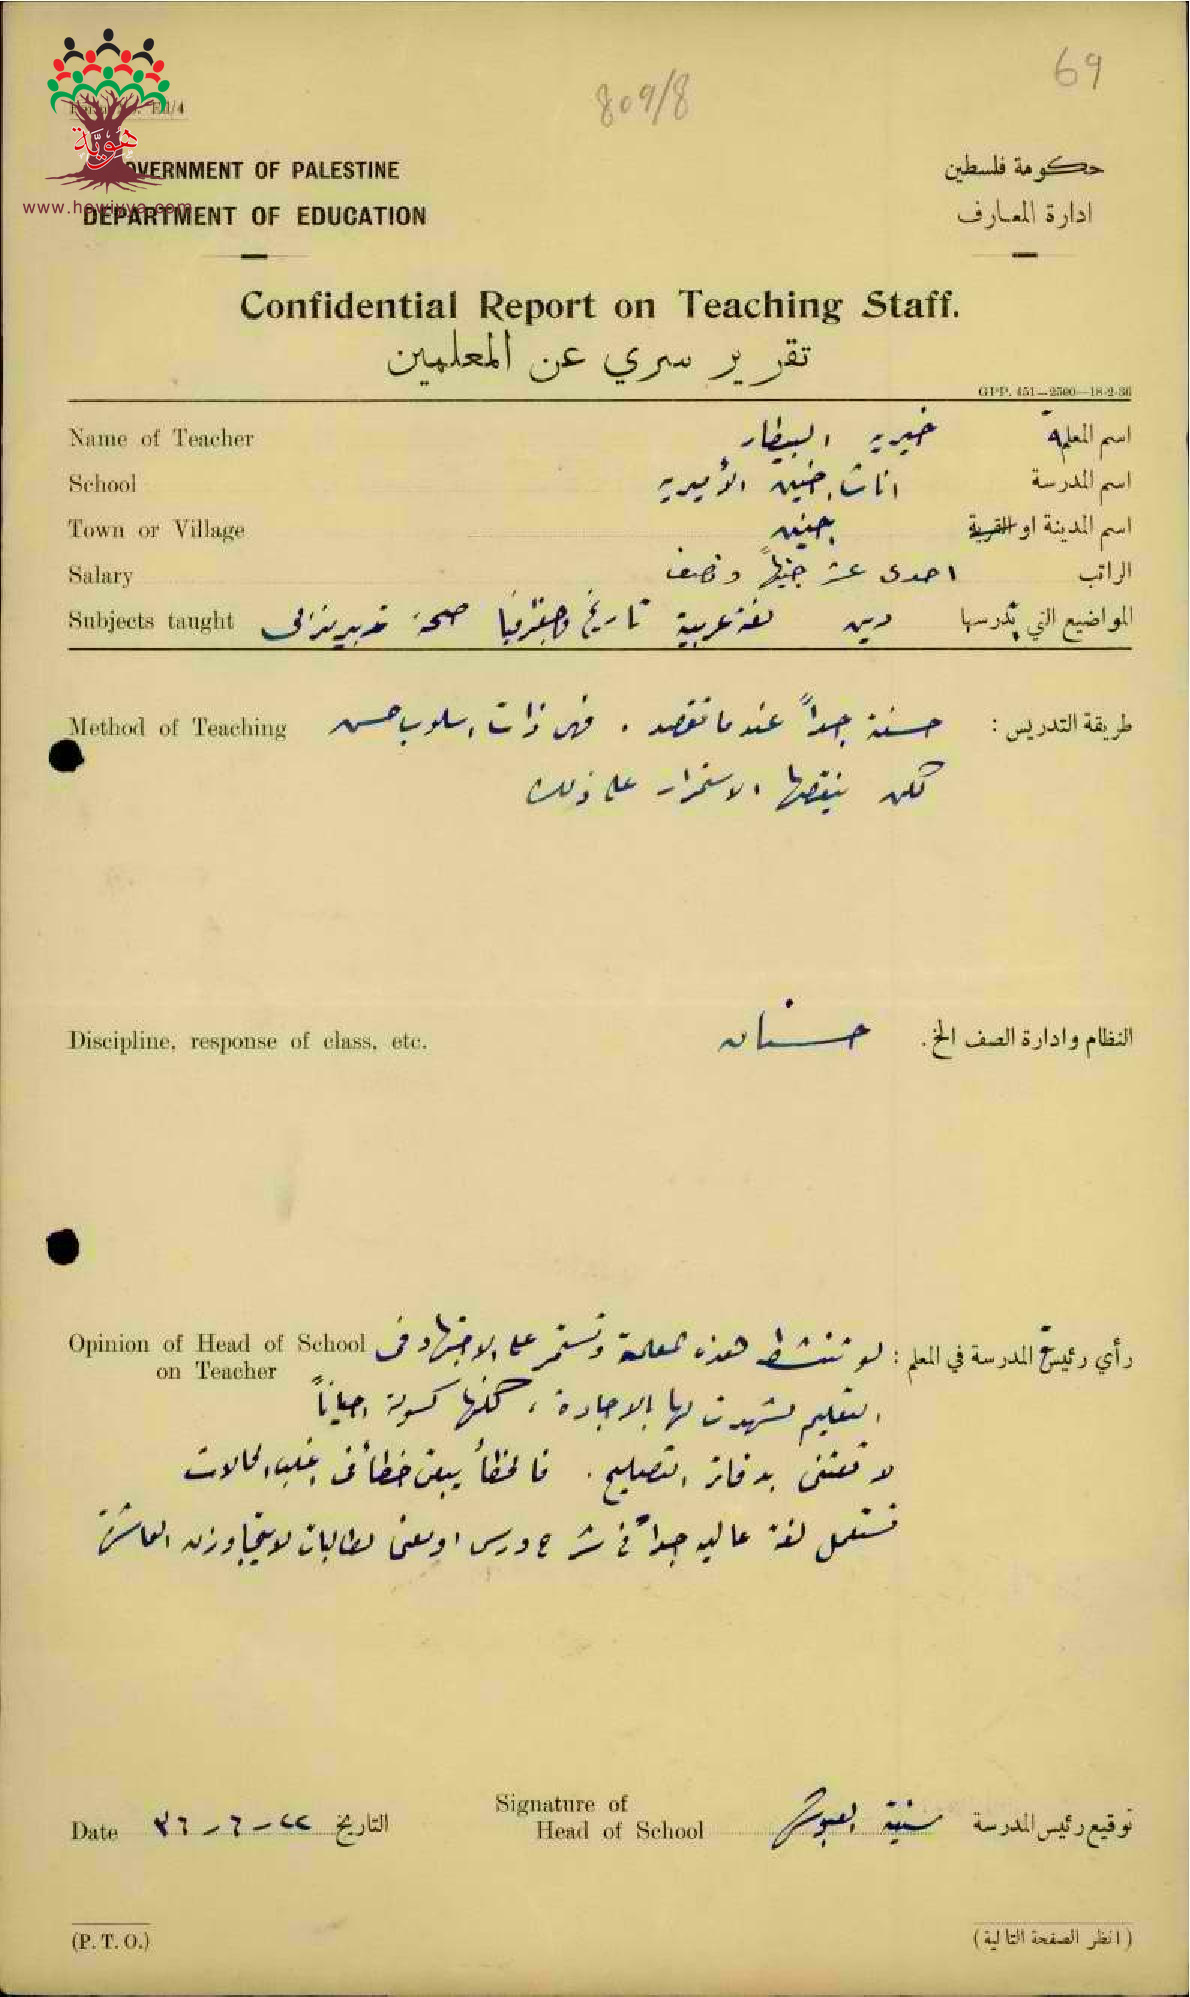 69
809/8
هوية
www.howiyya.com
GOVERNMENT OF PALESTINE
حكومة فلسطين
DEPARTMENT OF EDUCATION
ادارة المعارف
Confidential Report on Teaching Staff.
تقرير سري عن المعلمين
GPP. 451—2500—18-2-36
Name of Teacher خيريه البيطار اسم المعلمة
School اناث جنين الأميريه اسم المدرسة
Town or Village جنين اسم المدينة او القرية
Salary احدى عشر جنيهاً ونصف الراتب
Subjects taught دين لغة عربية تاريخ وجغرافيا صحة تدبير منزلي المواضيع التي تدرسها
Method of Teaching طريقة التدريس : حسنة جداً عندما تقصد . فهي ذات اسلوب حسن
لكن ينقصها الاستمرار على ذلك
Discipline, response of class, etc. النظام وادارة الصف الخ. حسنان
Opinion of Head of School رأي رئيسة المدرسة في المعلم : لو تنشط هذه المعلمة وتستمر على الاجتهاد في
on Teacher
التعليم لشهدت لها بالاجادة ، لكنها كسولة احياناً
لا تعتني بدفاتر التصليح . فالخطأ يبقى خطأ في اغلب الحالات
تستعمل لغة عاليه جداً في شرح درس او معنى لطالبات لا يتجاوزن العاشرة
Signature of
Head of School سنية العبوشي توقيع رئيس المدرسة
Date ٢٢-٦-٣٦ التاريخ
(P. T. O.)
(انظر الصفحة التالية)